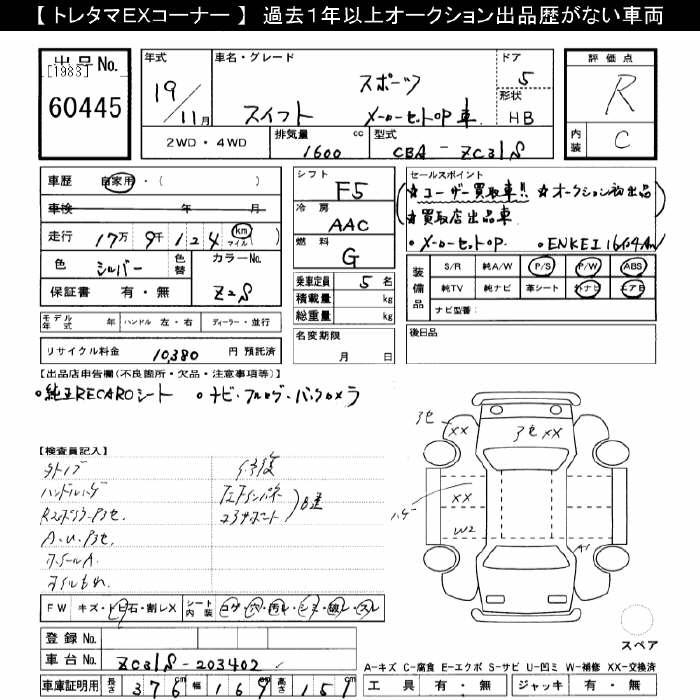 【 トレタマEXコーナー 】 過去１年以上オークション出品歴がない車両
出品No.
[1983]
60445
年式
19/11月
車名・グレード
スポーツ
スイフト メーカーセットOP車
ドア
5
形状
HB
2WD・4WD
排気量 cc
1600
型式
CBA - ZC31S
評価点
R
内装
C
車歴 自家用・( )
車検 年 月
走行 17万 9千 124 km マイル
色 シルバー 色替
カラーNo.
Z2S
保証書 有・無
シフト
F5
冷房
AAC
燃料
G
乗車定員 5 名
積載量 kg
総重量 kg
名変期限
月 日
セールスポイント
★ユーザー買取車!! ★オークション初出品
★買取店出品車
・メーカーセットOP. ・ENKEI
装備品
S/R 純A/W P/S P/W ABS
純TV 純ナビ 革シート 社外ナビ エアB
ナビ型番：
後日品
モデル年式 年 ハンドル 左・右 ディーラー・並行
リサイクル料金 10,380 円 預託済
【出品店申告欄(不良箇所・欠品・注意事項等)】
・純正RECAROシート ・ナビ・フルセグ・バックカメラ
【検査員記入】
外トップ 修復
ハンドルハゲ
A.U.
オイルもれ
W2
XX
XX
XX
A1
ハゲ
FW キズ・トビ石・割レX シート内装 コゲ・穴・汚レ・シミ・破レ・スレ
登録 No.
車台 No. ZC31S-203402
車庫証明用 長さ 376 幅 169 高さ 151
スペア
A-キズ C-腐食 E-エクボ S-サビ U-凹ミ W-補修 XX-交換済
工具 有・無 ジャッキ 有・無